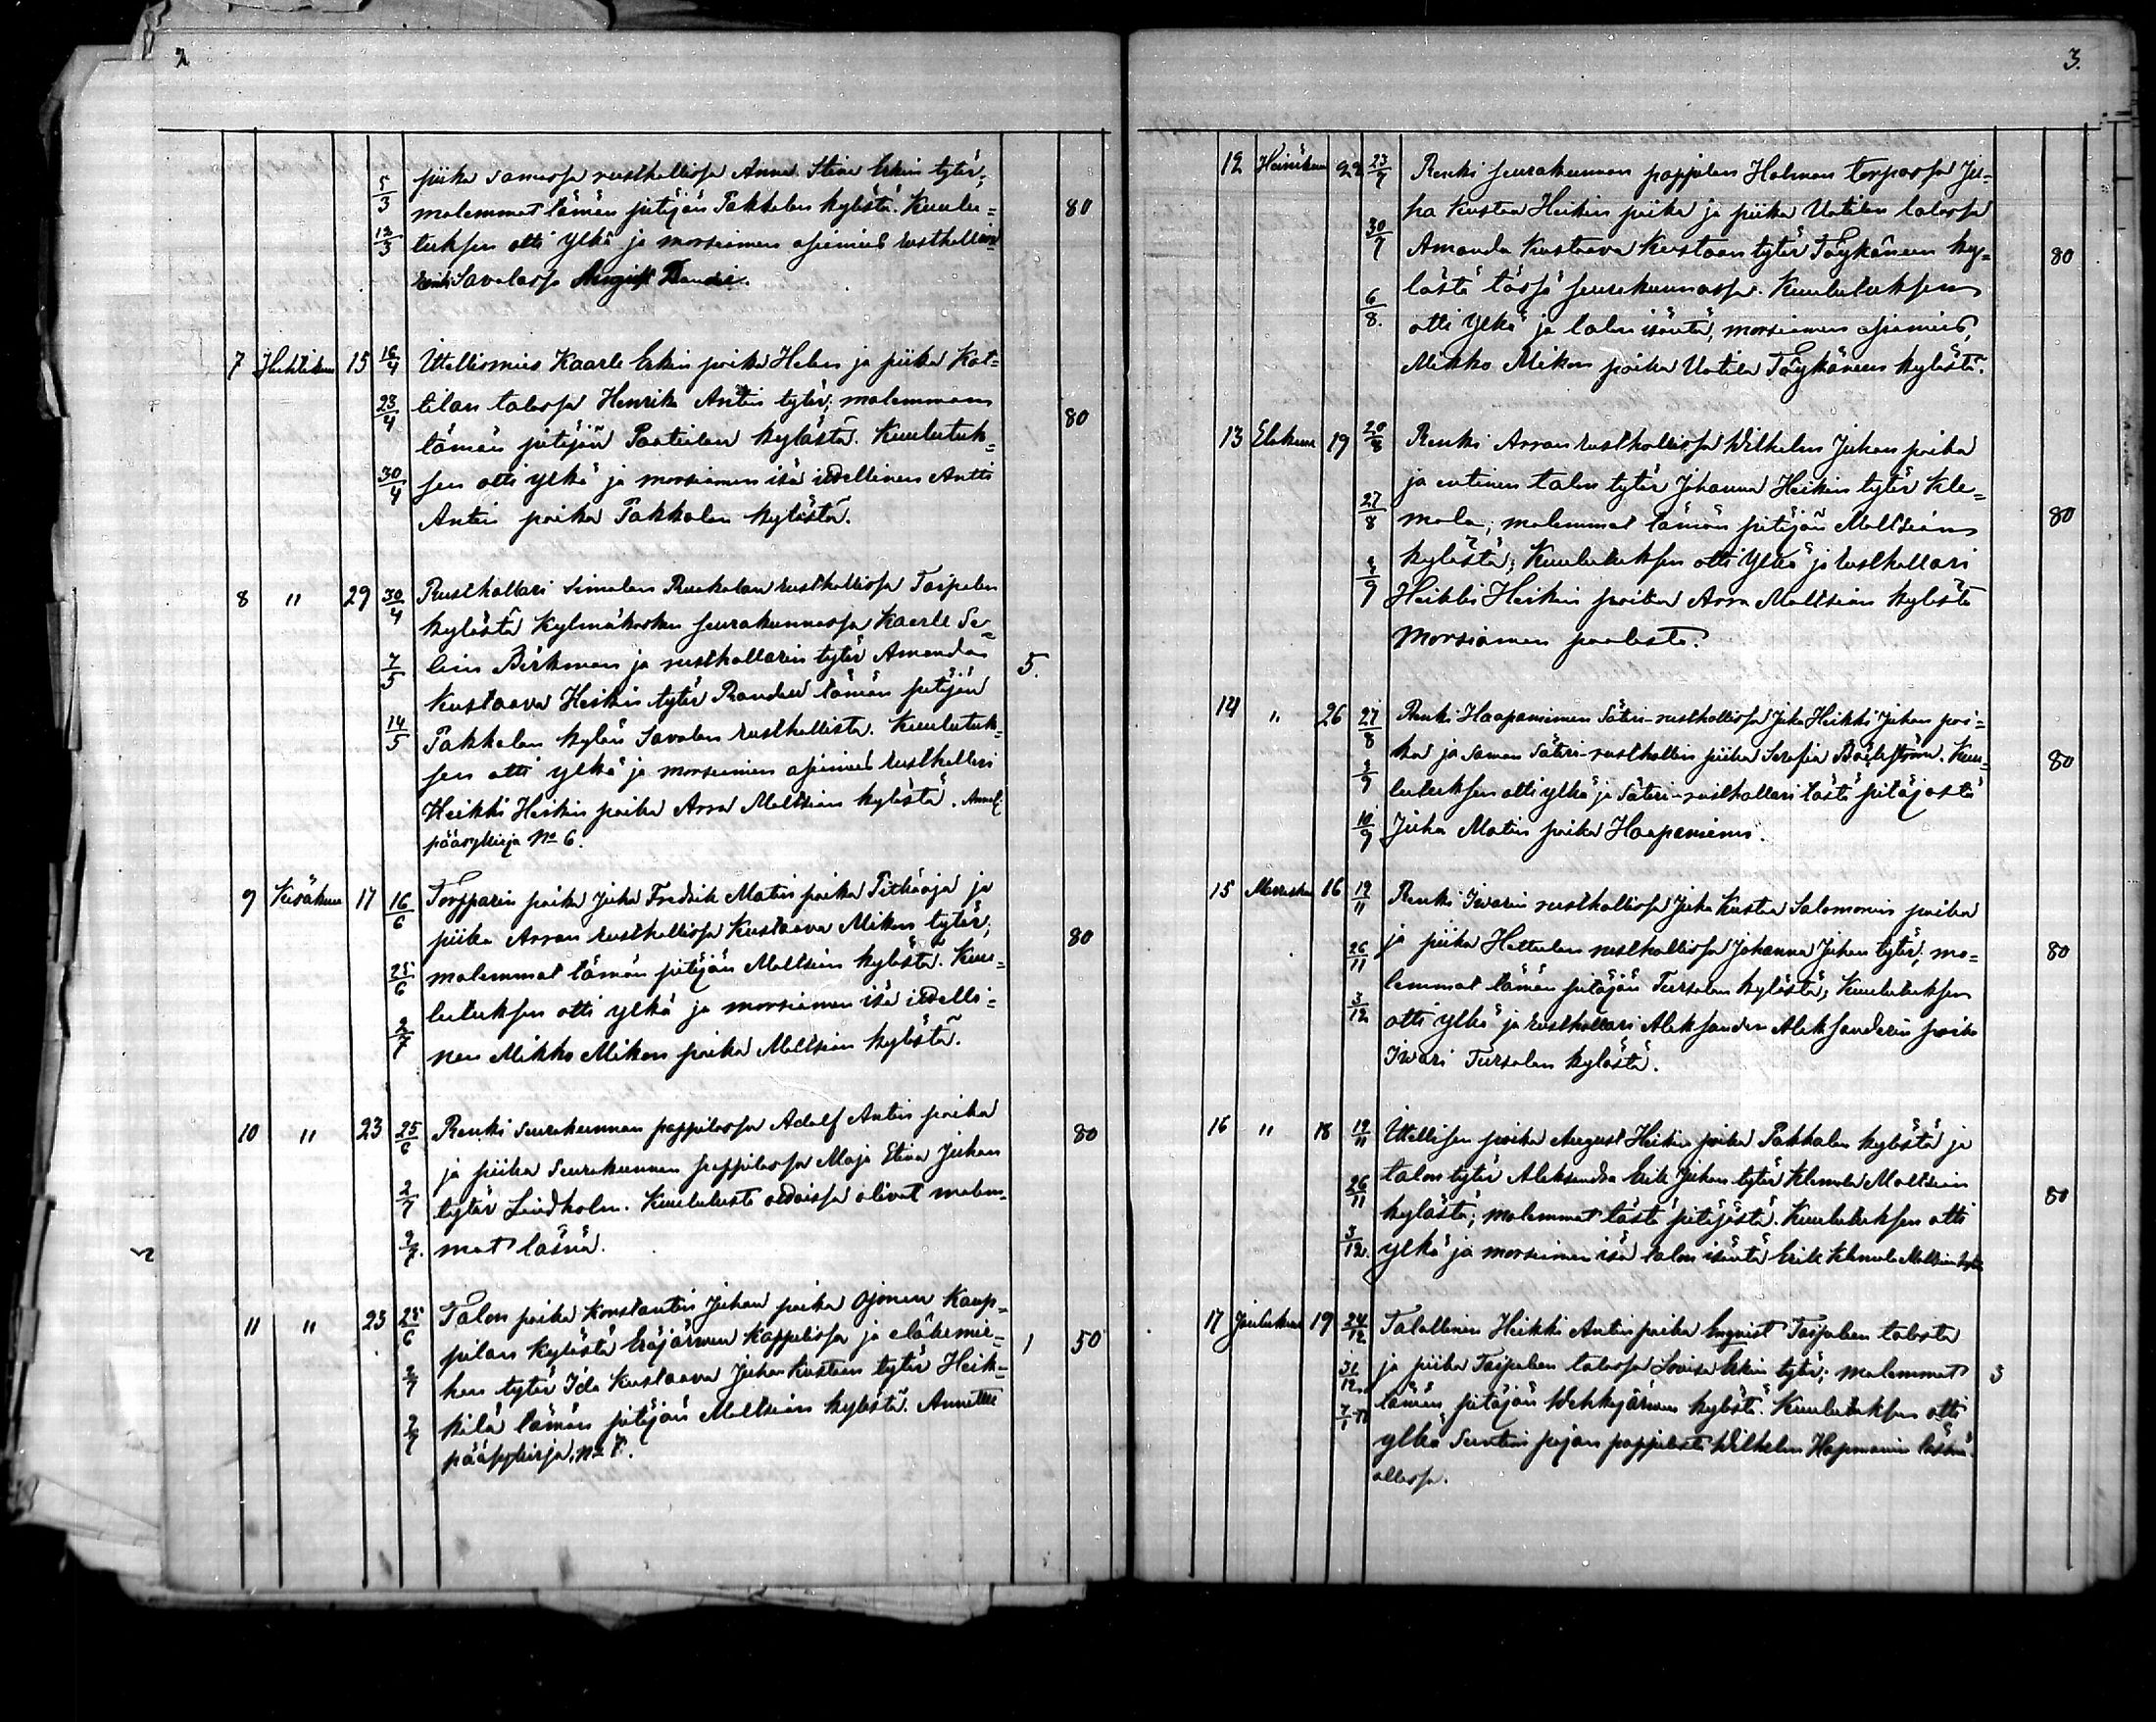 2
5/3 piika samassa rusthollissa Anna Stina Erkin tytär;
molemmat tämän pitäjän Pakkalan kylästä. Kuulu= 80
12/3 tuksen otti ylkä ja morsiamen asiamies rusthollin
renki Savalassa August
7 Huhtikuu 15 16/4 Itellismies Kaarle Erkin poika Helen ja piika Kot=
23/4 tilan talossa Henrika Antin tytär; molemmans
tämän pitäjän kylästä. Kuulutuk= 80
30/4 sen otti ylkä ja morsiamen isä itellinen Antti
Antin poika Pakkalan kylästä.
8 " 29 30/4 Rusthollari Simolan Ruokolan rusthollissa Taipalen
kylästä Kylmäkosken seurakunnassa Kaarle Se=
7/5 lim Birkman ja rusthollarin tytär Amanda 5.
Kustaava Heikin tytär tämän pitäjän
14/5 Pakkalan kylän Savolan rusthollista. Kuulutuk=
sen otti ylkä ja morsiamen asiamies rusthollari
Heikki Heikin poika Arra Maltsian kylästä. Annet.
pääsykirja No 6.
9 Kesäkuu 17 16/6 Torpparin poika Juha Fredrik Matin poika Pitkäoja ja
piika Arran rusthollissa Kustaava Mikon tytär; 80
25/6 molemmat tämän pitäjän Maltsian kylästä. Kuu=
lutuksen otti ylkä ja morsiamen isä itelli=
2/7 nen Mikko Mikon poika Maltsian kylästä.
10 " 23 25/6 Renki seurakunnan pappilassa Adolf Antin poika 80
ja piika seurakunnan pappilassa Maja Stina Juhan
2/7 tytär Lindholm. Kuulutusta otettaissa olivat molem=
9/7. mat läsnä.
11 " 23 25/6 Talon poika Konstantin Juhan poika Ojonen Kaup=
pilan kylästä Eräjärven kappelissa ja eläkemie= 1 50
2/7 hen tytär Ida Kustaava Juhan Kustaan tytär Heik=
kilä tämän pitäjän Maltsian kylästä. Annettu
9/7 pääsykirja, No 7.
3.
12 Heinäkuu 22 23/7 Renki seurakunnan pappilan Holman torpassa Ju=
ha Kustaa Heikin poika ja piika Uotilan talossa
30/7 Amanda Kustaava Kustaan tytär Töykänän ky= 80
lästä tässä seurakunnassa. Kuulutuksen
6/8. otti ylkä ja talon isäntä, morsiamen asiamies,
Mikko Mikon poika Uotila Töykänän kylästä.
13 Elokuu 19 20/8 Renki Arran rusthollissa Wilhelm Juhan poika
ja entinen talon tytär Johanna Heikin tytär Kle=
27/8 mola; molemmat tämän pitäjän Maltsian 80
kylästä; Kuulutuksen otti ylkä ja rusthollari
3/9 Heikki Heikin poika Arra Maltsian kylästä
morsiamen puolesta.
14 " 26 27/8 Renki Haapaniemen Säteri-rusthollissa Juha Heikki Juhan poi=
ka ja saman Säteri-rusthollin piika Serafia Bäckström. Kuu= 80
3/9 lutuksen otti ylkä ja Säteri-rusthollari tästä pitäjästä
10/9 Juha Matin poika Haapaniemi.
15 Marraskuu 16 19/11 Renki Iivarin rusthollissa Juha Kustaa Salomonin poika
26/11 ja piika Hattulan rusthollissa Johanna Juhan tytär; mo= 80
lemmat tämän pitäjän Tursolan kylästä; Kuulutuksen
3/12 otti ylkä ja rusthollari Aleksander Aleksanderin poika
Iivari Tursolan kylästä.
16 " 18 19/11 Itellisen poika August Heikin poika Pakkalan kylästä ja
talon tytär Aleksandra Erik Juhan tytär Klemola Maltsian
26/11 kylästä; molemmat tästä pitäjästä. Kuulutuksen otti 80
3/12. ylkä ja morsiamen isä talon isäntä Erik Klemola Maltsian kyl.
17 Joulukuu 19 24/12 Talollinen Heikki Antin poika Engvist Taipaleen talosta
31/12 ja piika Taipaleen talossa Lovisa Erkin tytär; molemmat 3
7/1 tämän pitäjän Wehkajärven kylästä. Kuulutuksen otti
ylkä Suntion pojan pappilasta Wilhelm Hapmanin läsnä
ollessa.